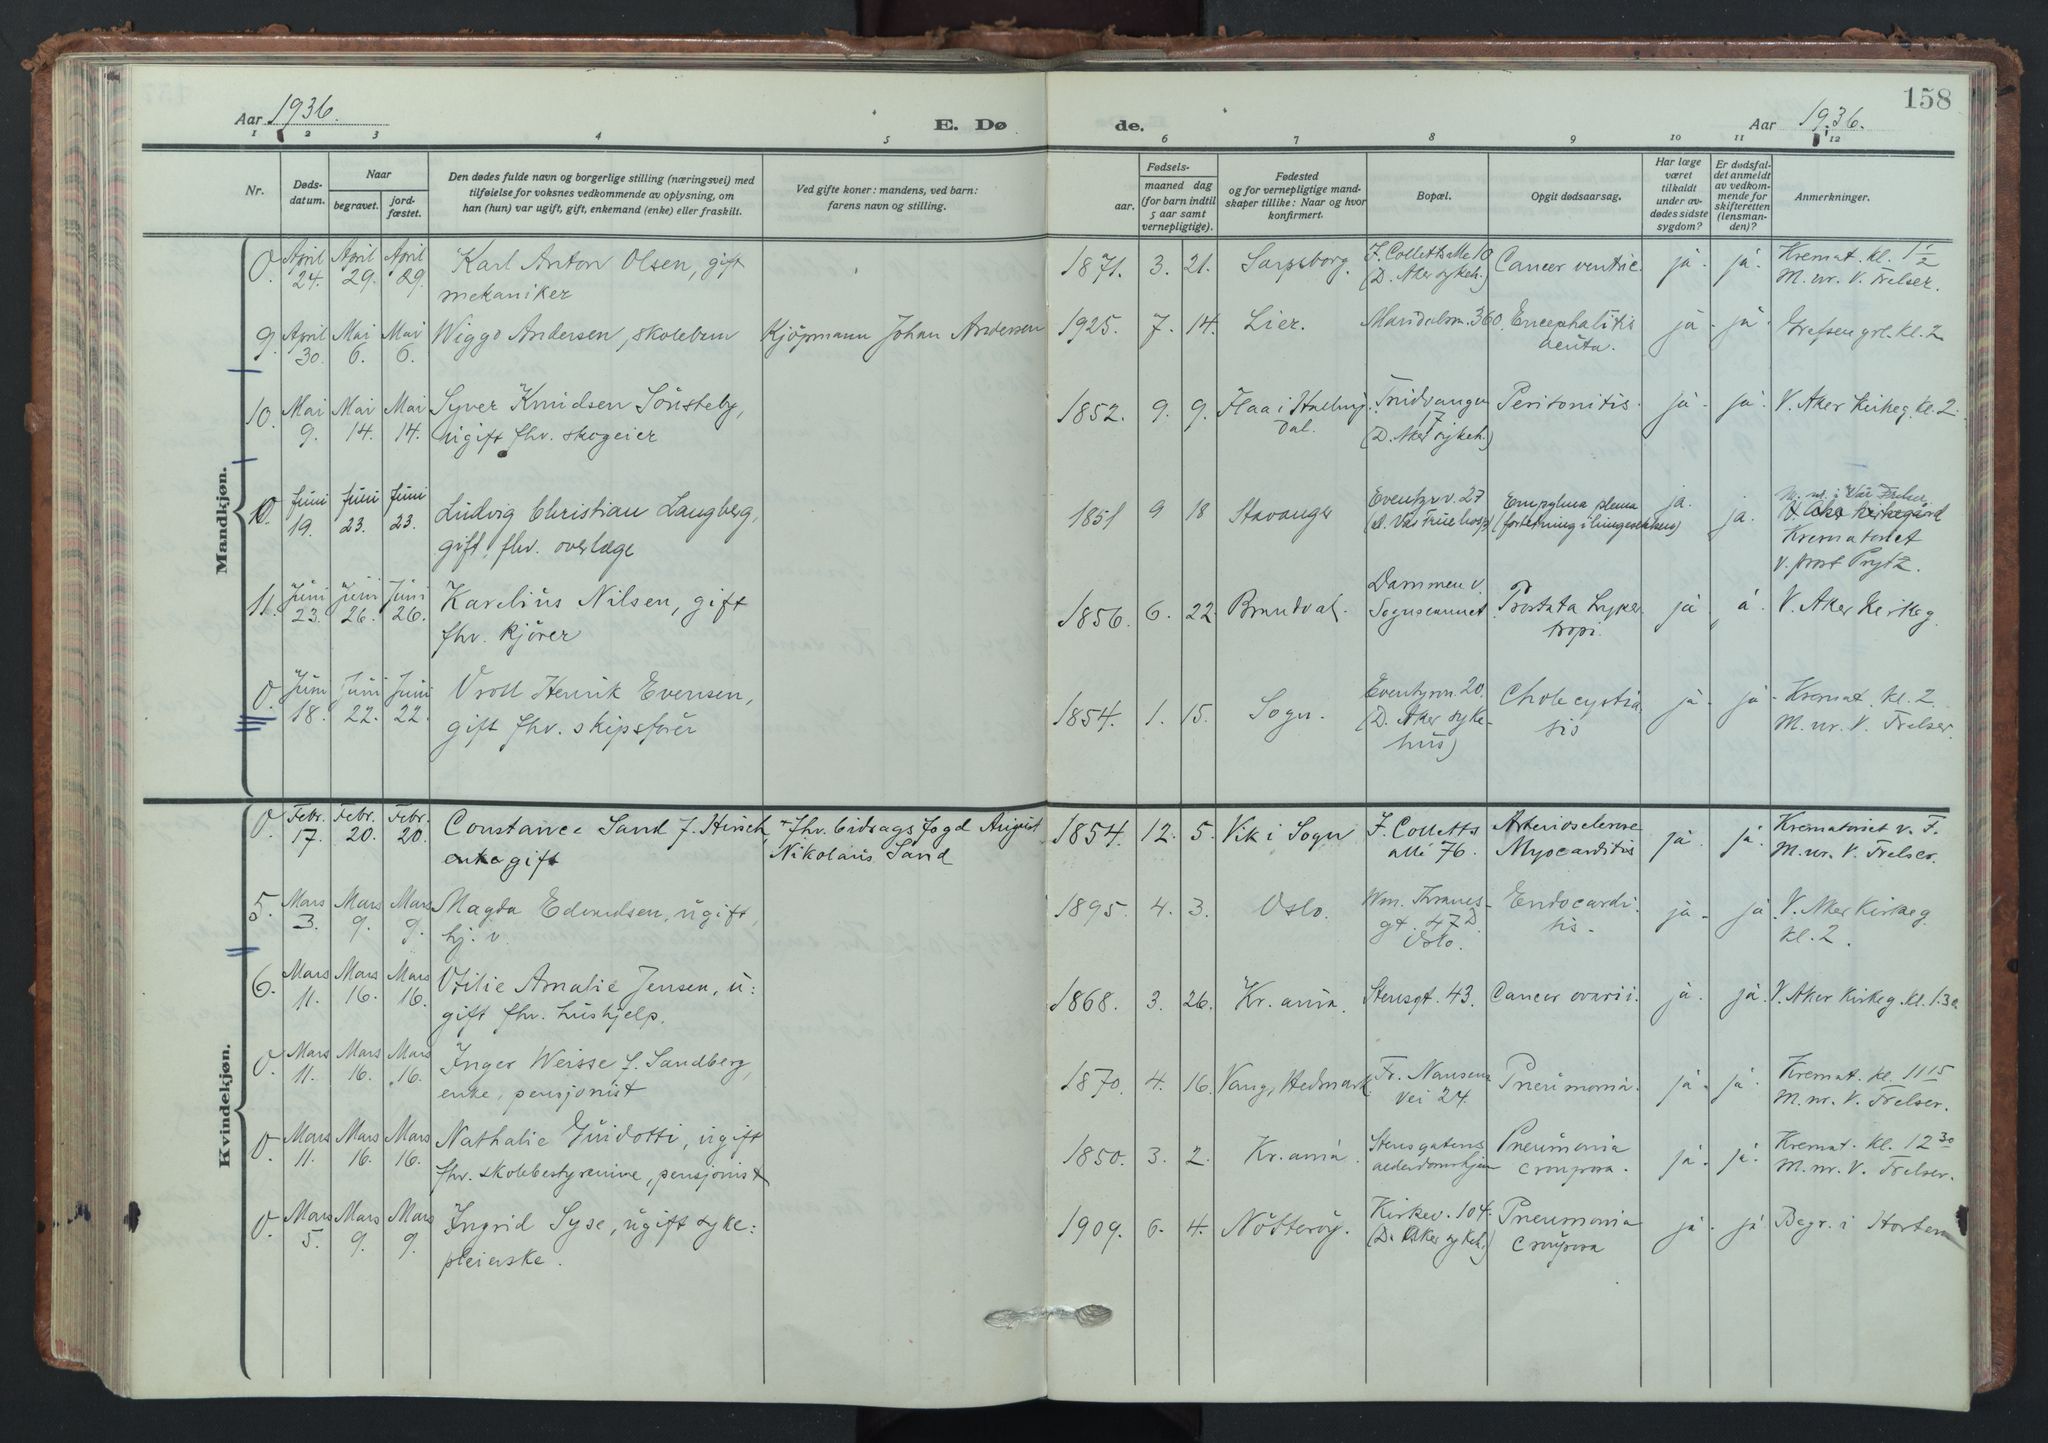 158
Aar 1936.
E. Dø
de.
Aar 1936.
1 2 3 4 5 6 7 8 9 10 11 12
Nr.
Døds-
datum.
Naar
begravet.
jord-
fæstet.
Den dødes fulde navn og borgerlige stilling (næringsvei) med
tilføielse for voksnes vedkommende av oplysning, om
han (hun) var ugift, gift, enkemand (enke) eller fraskilt.
Ved gifte koner: mandens, ved barn:
farens navn og stilling.
Fødsels-
aar.
maaned dag
(for barn indtil
5 aar samt
vernepligtige).
Fødested
og for vernepligtige mand-
skaper tillike: Naar og hvor
konfirmert.
Bopæl.
Opgit dødsaarsag.
Har læge
været
tilkaldt
under av-
dødes sidste
sygdom?
Er dødsfal-
det anmeldt
av vedkom-
mende for
skifteretten
(lensman-
den)?
Anmerkninger.
Mandkjøn.
0. April 24. April 29. April 29. Karl Anton Olsen, gift 1871. 3. 21. Sarpsborg. F. Colletts alle 10 Cancer ventric. ja. ja. Kremat. kl. 1 1/2
mekaniker (D. Aker sykeh.) M. ur. V. Frelser.
9. April 30. Mai 6. Mai 6. Wiggo Andersen, skolebarn Kjöpmann Johan Andersen 1925. 7. 14. Lier. Maridalsv. 360. Encephalitis ja. ja. Grefsen grl. kl. 2
acuta.
10. Mai 9. Mai 14. Mai 14. Syver Knudsen Sönsteby, 1852. 9. 9. Flaa i Halling- 17 Peritonitis. ja. ja. V. Aker Kirkeg. kl. 2.
ugift fhv. skogeier dal. (D. Aker sykeh.)
0. Juni 19. Juni 23. Juni 23. Ludvig Christian Langberg, 1851 9 18 Stavanger Eventyrv. 27 ja. ja. M. ur. i Vår Frelser.
gift, fhv. overlæge Krematoriet
v. prost Prytz.
11. Juni 23. Juni 26. Juni 26. Karelius Nilsen, gift 1856. 6. 22. Brandval. Dammen v. Prostata hyper ja. V. Aker Kirkeg.
fhv. kjörer Sognsvannet tropi.
0. Juni 18. Juni 22. Juni 22. Henrik Evensen, 1854. 1. 15. Sogn. Eventyrv. 20. Cholecysti ja. ja. Kremat. kl. 2.
gift fhv. skipsförer (D. Aker syke- tis M. ur. V. Frelser.
hus)
Kvindekjøn.
0. Febr. 17. Febr. 20. Febr. 20. Constance Sand f. Hirsch, fhv. bidragsfogd August 1854. 12. 5. Vik i Sogn F. Colletts Arteriosclerose ja. ja. Krematoriet v. F.
enke gift Nikolaus Sand alle 76. Myocarditis M. ur. V. Frelser.
5. Mars 3. Mars 9. Mars 9. Magda Edvardsen, ugift, 1895. 4. 3. Oslo. Wm. Thranes- Endocardi- ja. ja V. Aker Kirkeg
hj. v. gt. 47 D. tis. kl. 2.
Oslo.
6. Mars 11. Mars 16. Mars 16. Otilie Amalie Jensen, u- 1868. 3. 26. Kr.ania. Stensgt. 43. Cancer ovarii. ja. ja. V. Aker Kirkeg. kl. 1.30
gift fhv. hushjelp.
0. Mars 11. Mars 16. Mars 16. Inger Weisse f. Sandberg, 1870. 4. 16. Vang, Hedmark Fr. Nansens Pneumonia. ja. ja. Kremat. kl. 11 15
enke, pensjonist vei 24. M. ur. V. Frelser.
0. Mars 11. Mars 16. Mars 16. Nathalie Guidotti, ugift 1850. 3. 2. Kr.ania. Stensgatens Pneumonia ja. ja. Kremat. kl. 12 30
fhv. skolebestyrerinne, pensjonist aldershjem crouposa. M. ur. V. Frelser.
0. Mars 5. Mars 9. Mars 9. Ingrid Syse, ugift syke- 1909. 6. 4. Nötteröy. Kirkev. 104. Pneumonia ja. ja. Begr. i Horten
pleierske. (D. Aker sykeh.) crouposa